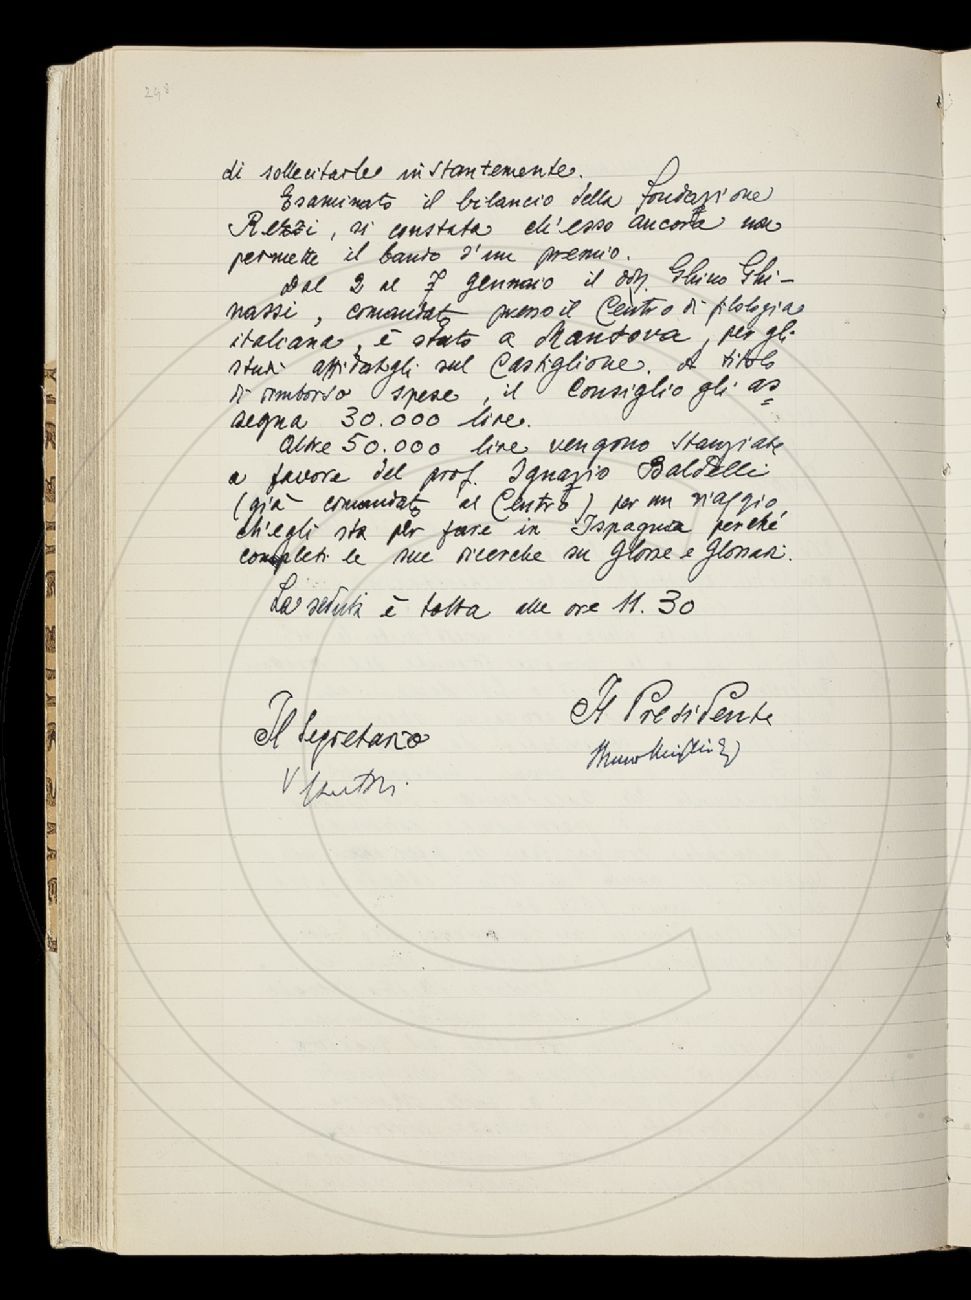 248
di sollecitarle instantemente.
Esaminato il bilancio della Fondazione
Rezzi, si constata ch'esso ancora non
permette il bando d'un premio.
Dal 2 al 7 gennaio il dott. Ghino Ghi-
nassi, comandato presso il Centro di filologia
italiana, è stato a Mantova, per gli
studi affidatigli sul Castiglione. A titolo
di rimborso spese, il Consiglio gli as=
segna 30.000 lire.
Altre 50.000 lire vengono stanziate
a favore del prof. Ignazio Baldelli
(già comandato al Centro) per un viaggio
ch'egli sta per fare in Ispagna perché
completi le sue ricerche su Glosse e Glossari.
La seduta è tolta alle ore 11.30
Il Presidente
Il Segretario
Bruno Migliorini